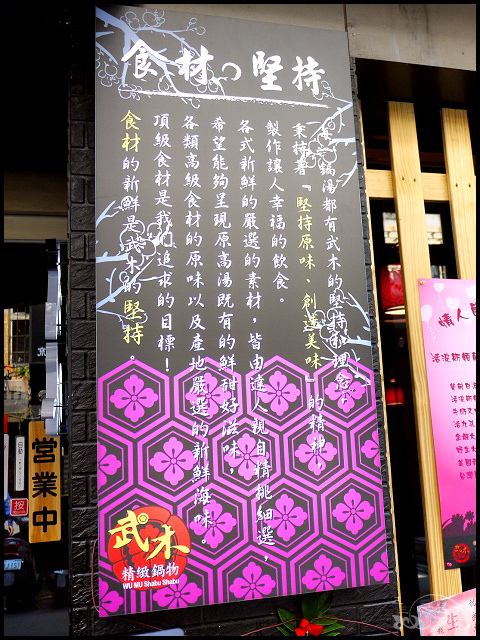 食材の堅持
每一鍋湯都有武木的堅持和理念，
秉持著「堅持原味、創造美味」的精神，
製作讓人幸福的飲食。
各式新鮮的嚴選的素材，皆由達人親自精挑細選，
希望能夠呈現原高湯既有的鮮甜好滋味，
各類高級食材的原味以及產地嚴選的新鮮海味。
頂級食材是我們追求的目標！
食材的新鮮是武木的堅持。
武木
精緻鍋物
WU MU Shabu Shabu
營業中
自動
按
情人